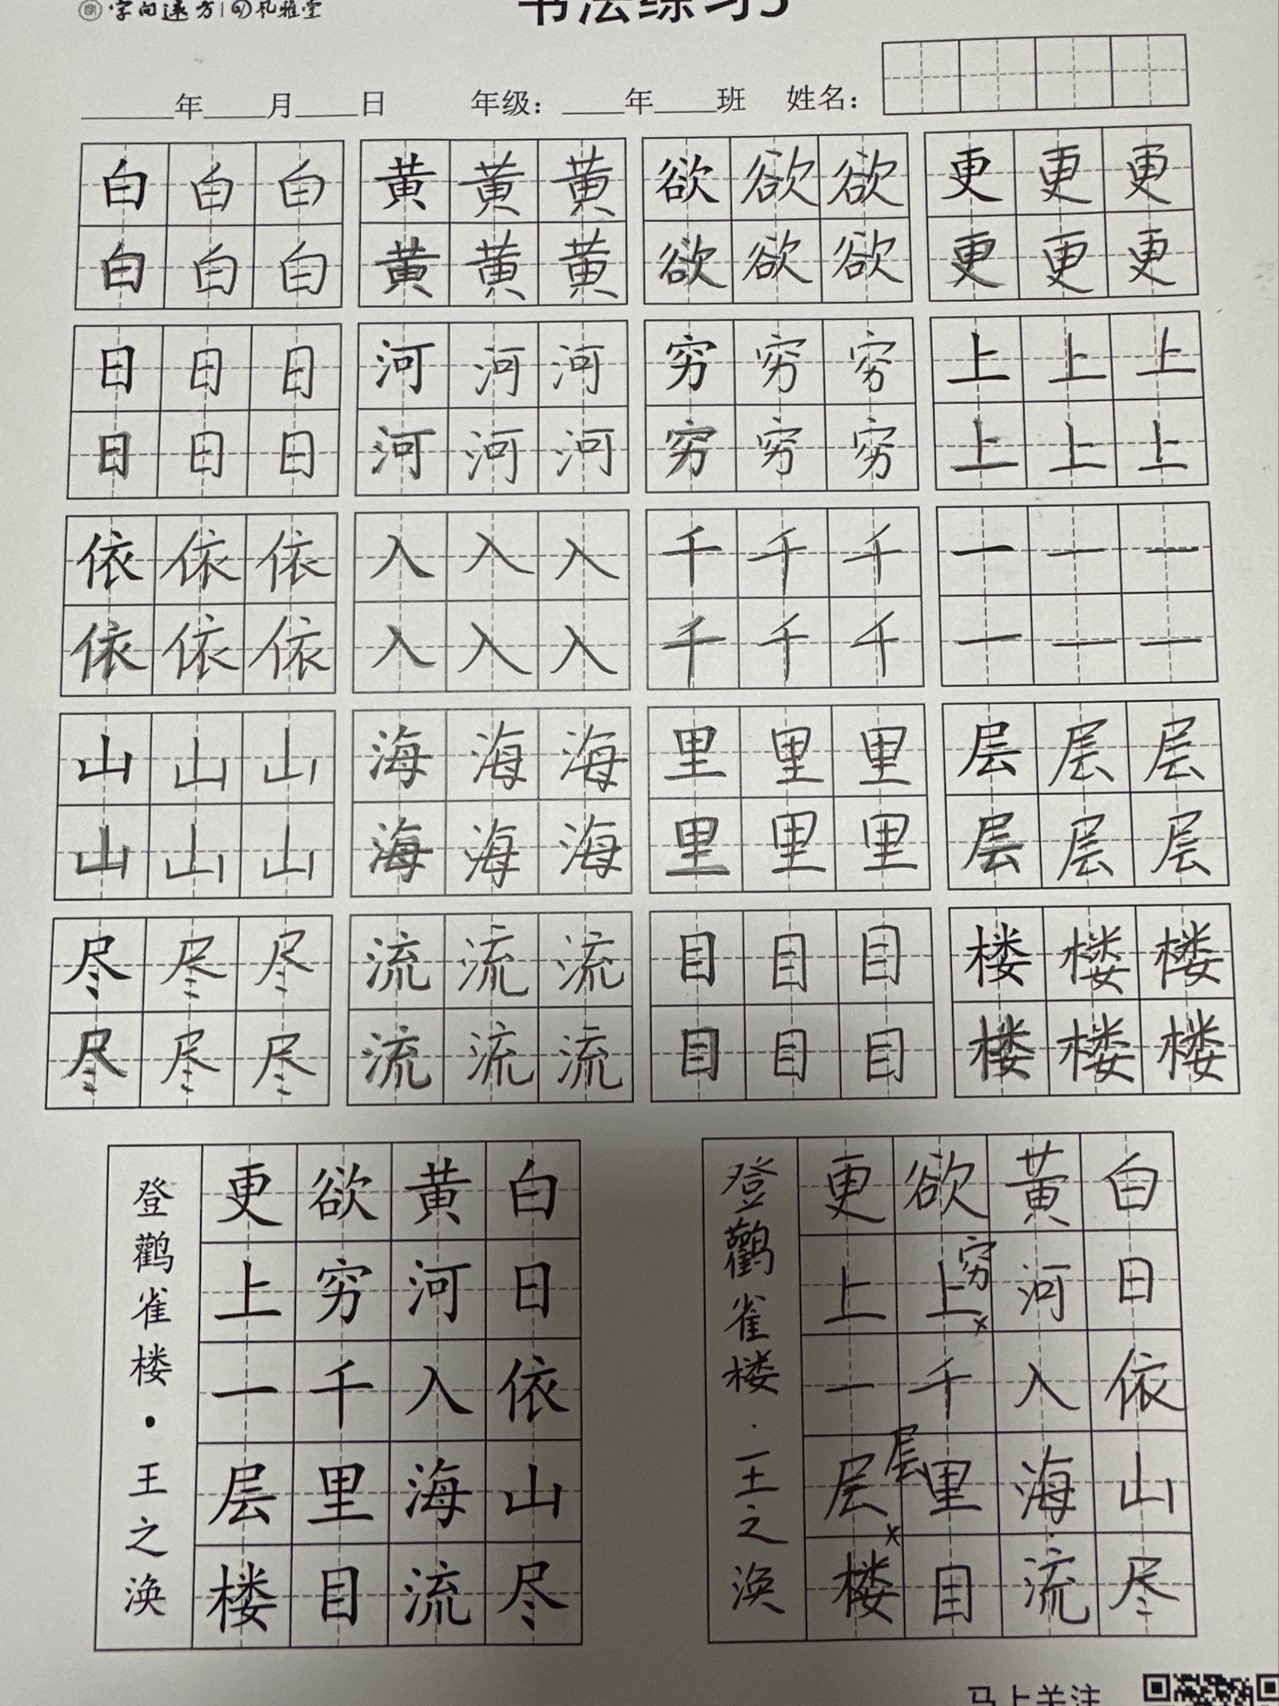 字向远方 礼雅堂
书法练习3
年 月 日 年级： 年 班 姓名：
白白白 黄黄黄 欲欲欲 更更更
白白白 黄黄黄 欲欲欲 更更更
日日日 河河河 穷穷穷 上上上
日日日 河河河 穷穷穷 上上上
依依依 入入入 千千千 一一一
依依依 入入入 千千千 一一一
山山山 海海海 里里里 层层层
山山山 海海海 里里里 层层层
尽尽尽 流流流 目目目 楼楼楼
尽尽尽 流流流 目目目 楼楼楼
登鹳雀楼·王之涣
白日依山尽
黄河入海流
欲穷千里目
更上一层楼
登鹳雀楼·王之涣
白日依山尽
黄河入海流
欲上×穷千里目
更上一层×层楼
马上关注